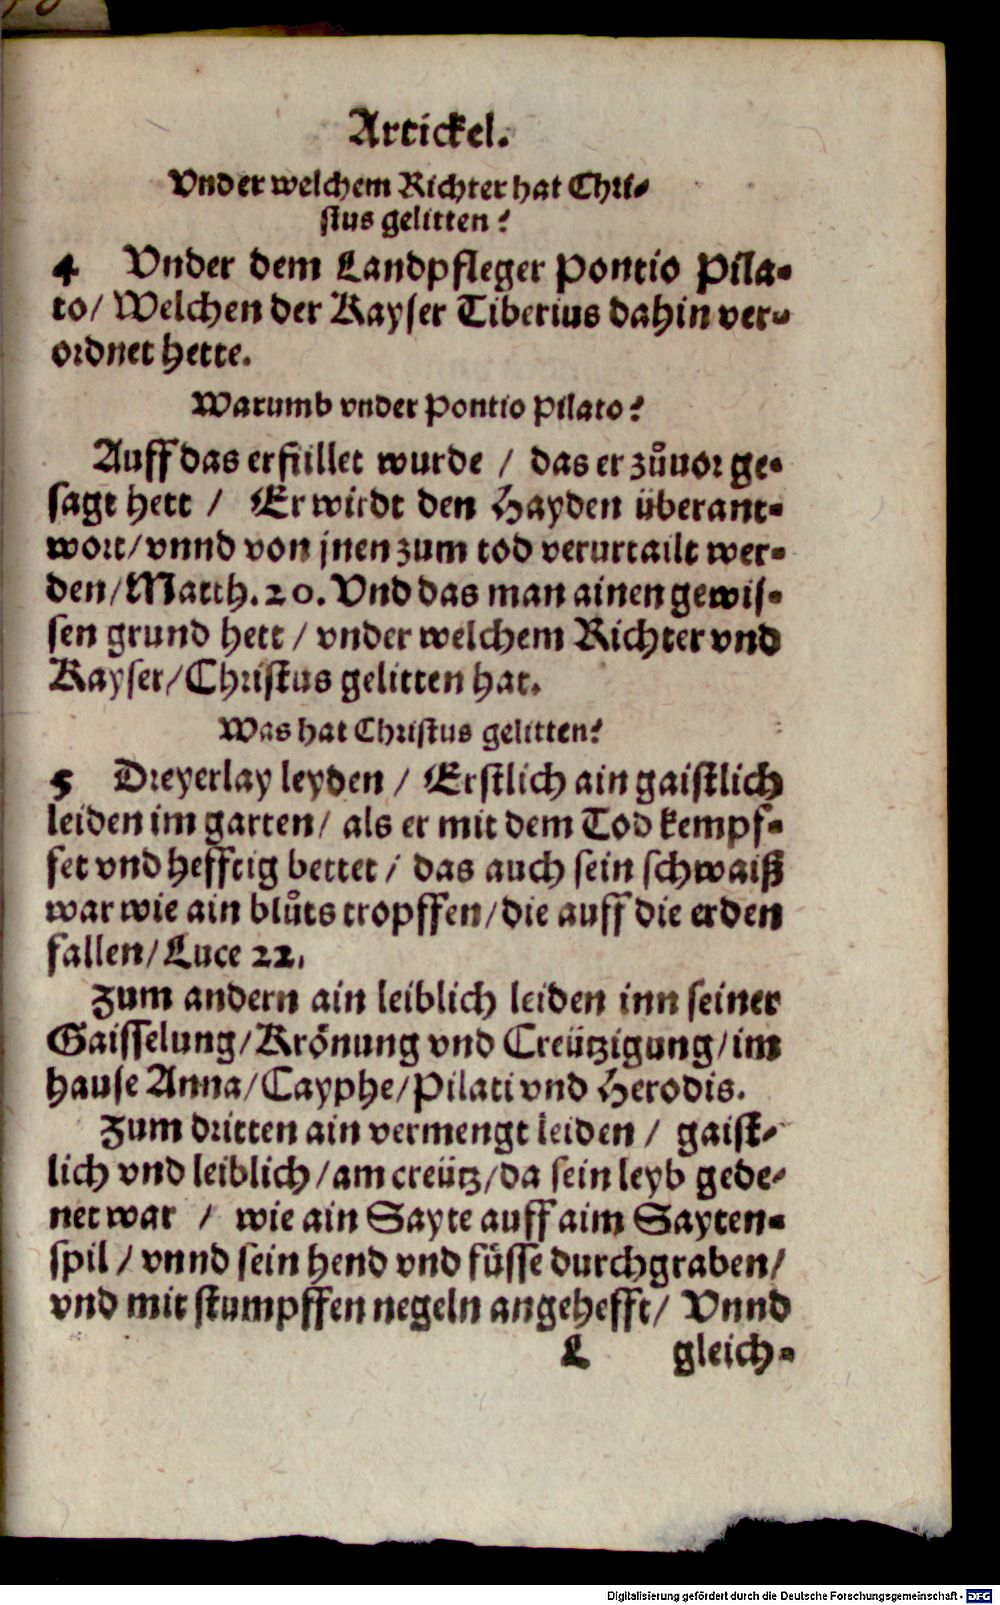 Artickel.
Vnder welchem Richter hat Chri-
stus gelitten?
4 Vnder dem Landpfleger Pontio Pila-
to/ Welchen der Kayser Tiberius dahin ver-
ordnet hette.
Warumb vnder Pontio Pilato?
Auff das erfüllet wurde / das er zůuor ge-
sagt hett / Er wirdt den Hayden überant-
wort/ vnnd von jnen zum tod verurtailt wer-
den/ Matth. 20. Vnd das man ainen gewis-
sen grund hett / vnder welchem Richter vnd
Kayser/ Christus gelitten hat.
Was hat Christus gelitten?
5 Dreyerlay leyden / Erstlich ain gaistlich
leiden im garten/ als er mit dem Tod kempf-
fet vnd hefftig bettet / das auch sein schwaiß
war wie ain blůts tropffen/ die auff die erden
fallen/ Luce 22.
Zum andern ain leiblich leiden inn seiner
Gaisselung/ Krönung vnd Creützigung/ im
hause Anna/ Cayphe/ Pilati vnd Herodis.
Zum dritten ain vermengt leiden / gaist-
lich vnd leiblich / am creütz/ da sein leyb gede-
net war / wie ain Sayte auff aim Sayten-
spil / vnnd sein hend vnd füsse durchgraben/
vnd mit stumpffen negeln angehefft/ Vnnd
L gleich-
Digitalisierung gefördert durch die Deutsche Forschungsgemeinschaft - DFG